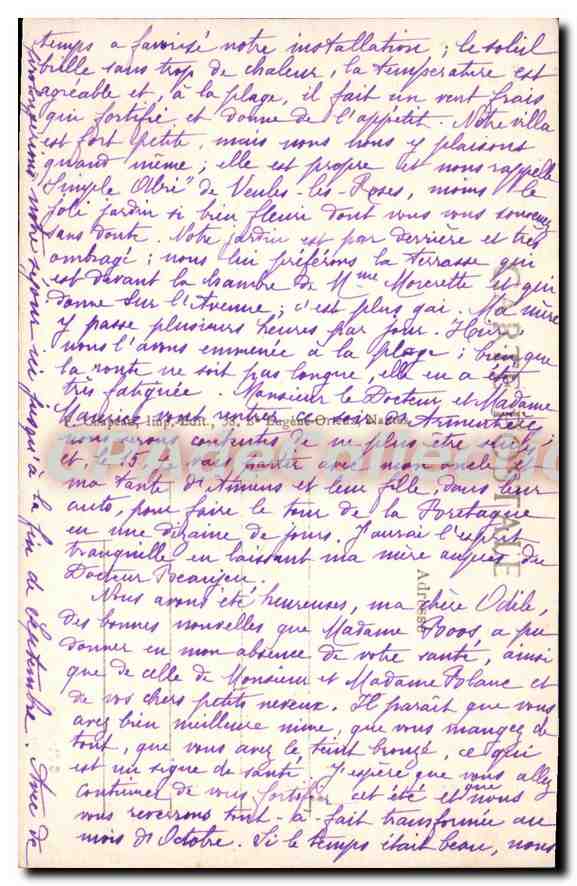 temps a favorisé notre installation ; le soleil
brille sans trop de chaleur, la température est
agréable et, à la plage, il fait un vent frais
qui fortifie et donne de l'appétit. Notre villa
est fort petite, mais nous nous y plaisons
quand même ; elle est propre et nous rappelle
"Simple Abri" de Veules-les-Roses, moins le
joli jardin si bien fleuri dont vous vous souvenez
sans doute. Notre jardin est par derrière et très
ombragé ; nous lui préférons la terrasse qui
est devant la chambre de Mme Morerette et qui
donne sur l'Avenue ; c'est plus gai. Ma mère
y passe plusieurs heures par jour. Hier
nous l'avons emmenée à la plage ; bien que
la route ne soit pas longue, elle en a été
très fatiguée. Monsieur le Docteur et Madame
Maurice vont rentrer ce soir
nous serons contentes de ne plus être seules ;
et le 15, je vais partir avec mon oncle et
ma tante d'Amiens et leur fille, dans leur
auto, pour faire le tour de la Bretagne
en une dizaine de jours. J'aurai l'esprit
tranquille en laissant ma mère auprès du
Docteur Beaujeu.
Nous avons été heureuses, ma chère Odile,
des bonnes nouvelles que Madame Boos, a pu
donner en mon absence de votre santé, ainsi
que de celle de Monsieur et Madame Blanc et
de vos chers petits neveux. Il paraît que vous
avez bien meilleure mine, que vous mangez de
tout, que vous avez le teint bronzé, ce qui
est un signe de santé. J'espère que vous allez
continuer de vous fortifier cet été et que nous
vous reverrons tout-à-fait transformée au
mois d'Octobre. Si le temps était beau, nous
prolongerions notre séjour ici jusqu'à la fin de Septembre. Amie de
CARTE POSTALE
Adresse
F. Chapeau, Imp. Edit., 38, Bd Eugène-Orieux, Nantes
CPA de Collection